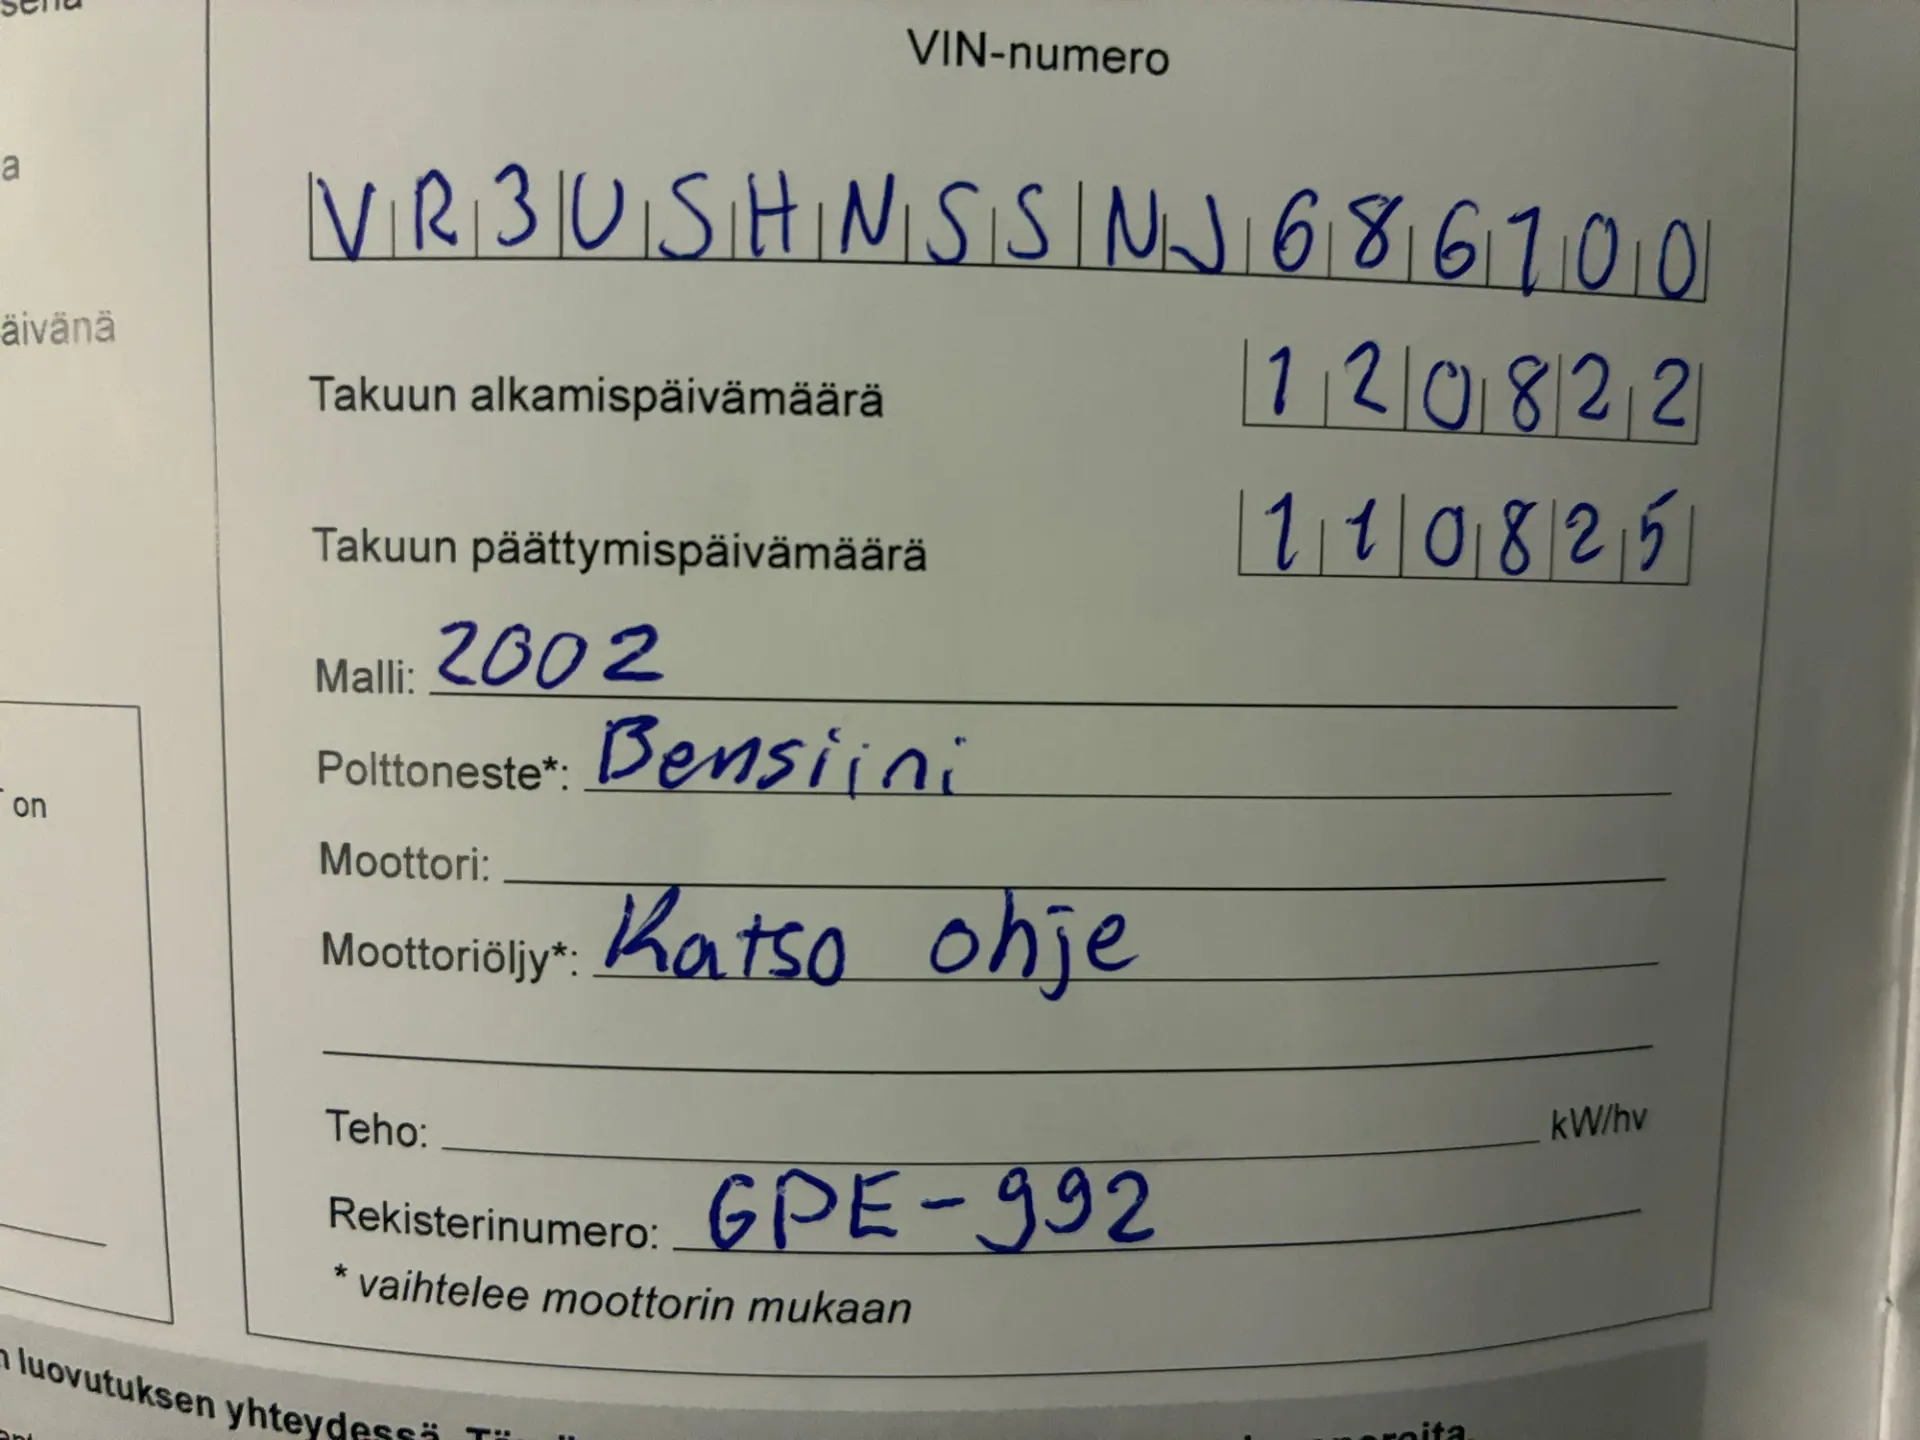 VIN-numero
a
VR3USHNSSNJ686100
äivänä
Takuun alkamispäivämäärä 120822
Takuun päättymispäivämäärä 110825
Malli: 2002
Polttoneste*: Bensiini
on
Moottori:
Moottoriöljy*: Katso ohje
Teho: kW/hv
Rekisterinumero: GPE-992
* vaihtelee moottorin mukaan
luovutuksen yhteydessä.